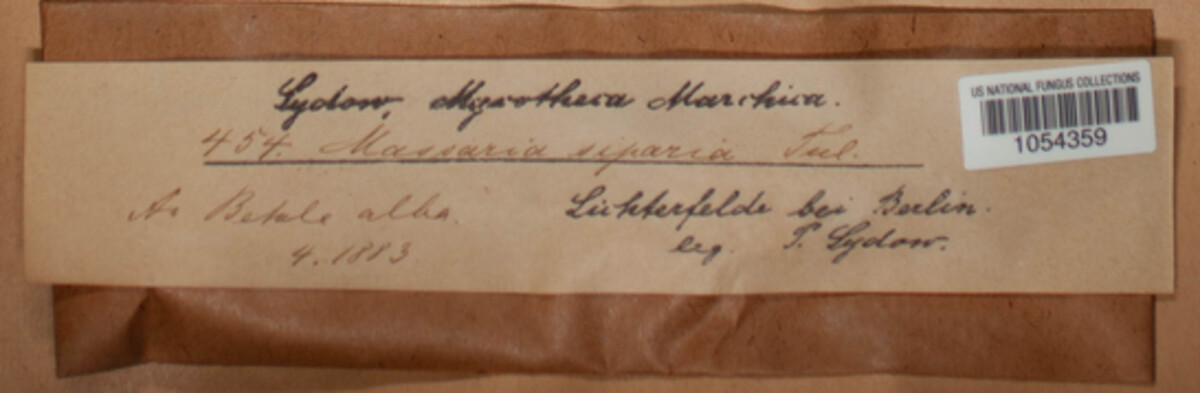 Sydow, Mycotheca Marchica.
454. Massaria siparia Tul.
An Betula alba.
4. 1883
Lichterfelde bei Berlin.
leg. P. Sydow.
US NATIONAL FUNGUS COLLECTIONS
1054359